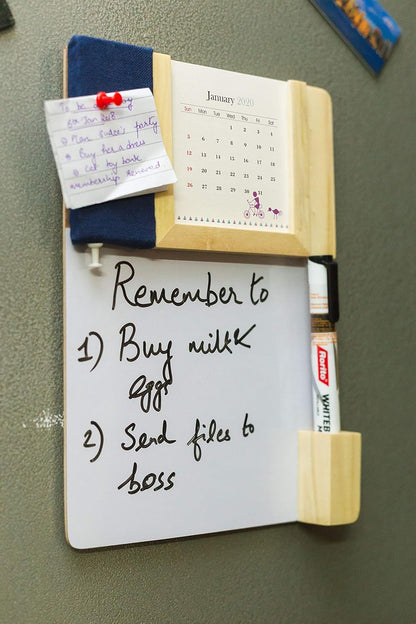 To be
6th Jan 2018
Plan Sudee's party
Buy her a dress
Get lib book
membership renewed
January 2020
Sun Mon Tue Wed Thu Fri Sat
1 2 3 4
5 6 7 8 9 10 11
12 13 14 15 16 17 18
19 20 21 22 23 24 25
26 27 28 29 30 31
Remember to
1) Buy milk
eggs
2) Send files to
boss
Rorito
WHITEB